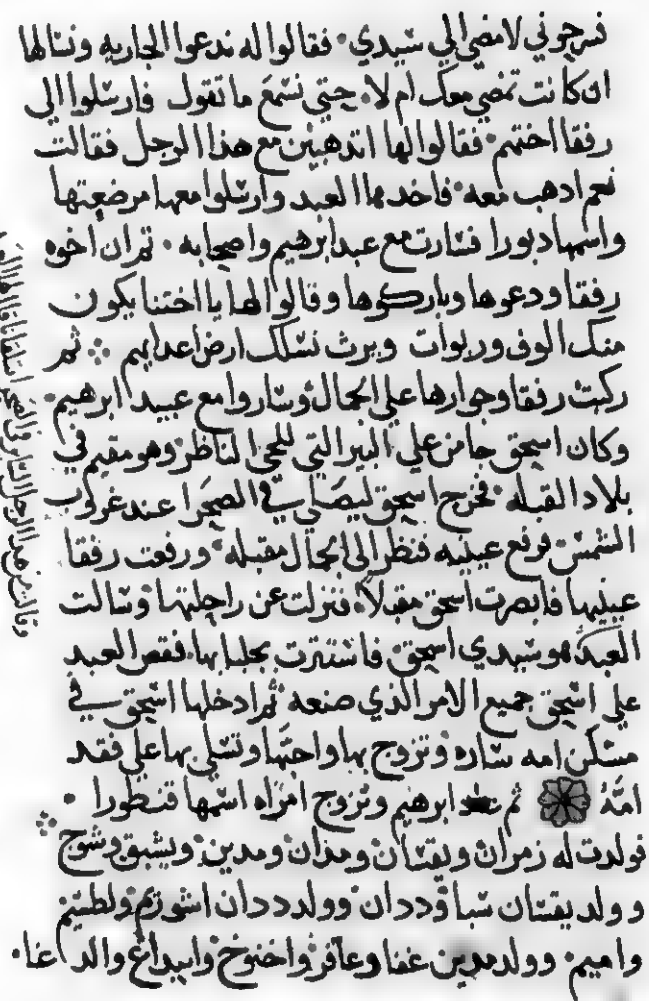 فسرحوني لامضي الي سيدي · فقالوا له ندعوا الجاريه ونسالها
ان كانت تمضي معك ام لا · حتي نسمع ما تقول فارسلوا الي
رفقا اختهم · فقالوا لها اتذهبين مع هذا الرجل فقالت
نعم اذهب معه · فاخدها العبد وارسلوا معها مرضعتها
واسمها دبورا فسارت مع عبد ابرهيم واصحابه · ثم ان اخوه
رفقا ودعوها وباركوها وقالوا لها يا اختنا يكون
منك الوف وربوات وبرث نسلك ارض اعدايهم ؞ ثم
ركبت رفقا وجوارها علي الجمال وساروا مع عبيد ابرهيم ·
وكان اسحق جا من علي البير التي للحي الناظر وهو مقيم في
بلاد القبله · فخرج اسحق ليصلي في الصحرا عند غروب
الشمس فرفع عينيه فنظر الي الجمال مقبله · ورفعت رفقا
عينيها فابصرت اسحق مقبلا · فنزلت عن راحلتها وسالت
العبد هو سيدي اسحق · فاستترت بجلبابها · فقص العبد
علي اسحق جميع الامر الذي صنعه ثم ادخلها اسحق في
مسكن امه ساره وتزوج بها واحبها وتسلي بها علي فقد
امه ثم ابرهيم وتزوج امراه اسمها قنطورا ·
فولدت له زمران ويقسان ومدان ومدين · ويشبق وشوح
وولد يقسان سبا وددان · وولد ددان اشوريم ولطسيم
واميم · وولد مدين عفا وعافر واخنوخ وابيداع والداعا ·
وقالت من هذا الرجل السائر في الصحرا لتلقانا قال لها العبد